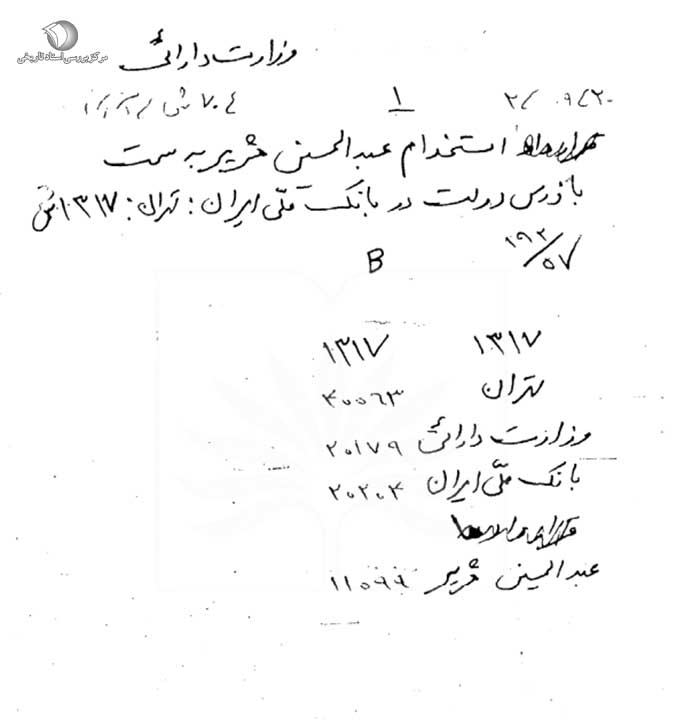 مرکز بررسی اسناد تاریخی
وزارت دارائی
۱
استخدام عبدالحسین هژیر به سمت
بازرس دولت در بانک ملی ایران: تهران: ۱۳۱۷ش
۱۹۲/۵۷
B
۱۳۱۷ ۱۳۱۷
تهران ۴۰۰۶۳
وزارت دارائی ۲۰۱۷۹
بانک ملی ایران ۲۰۲۰۴
عبدالحسین هژیر ۱۱۰۹۹